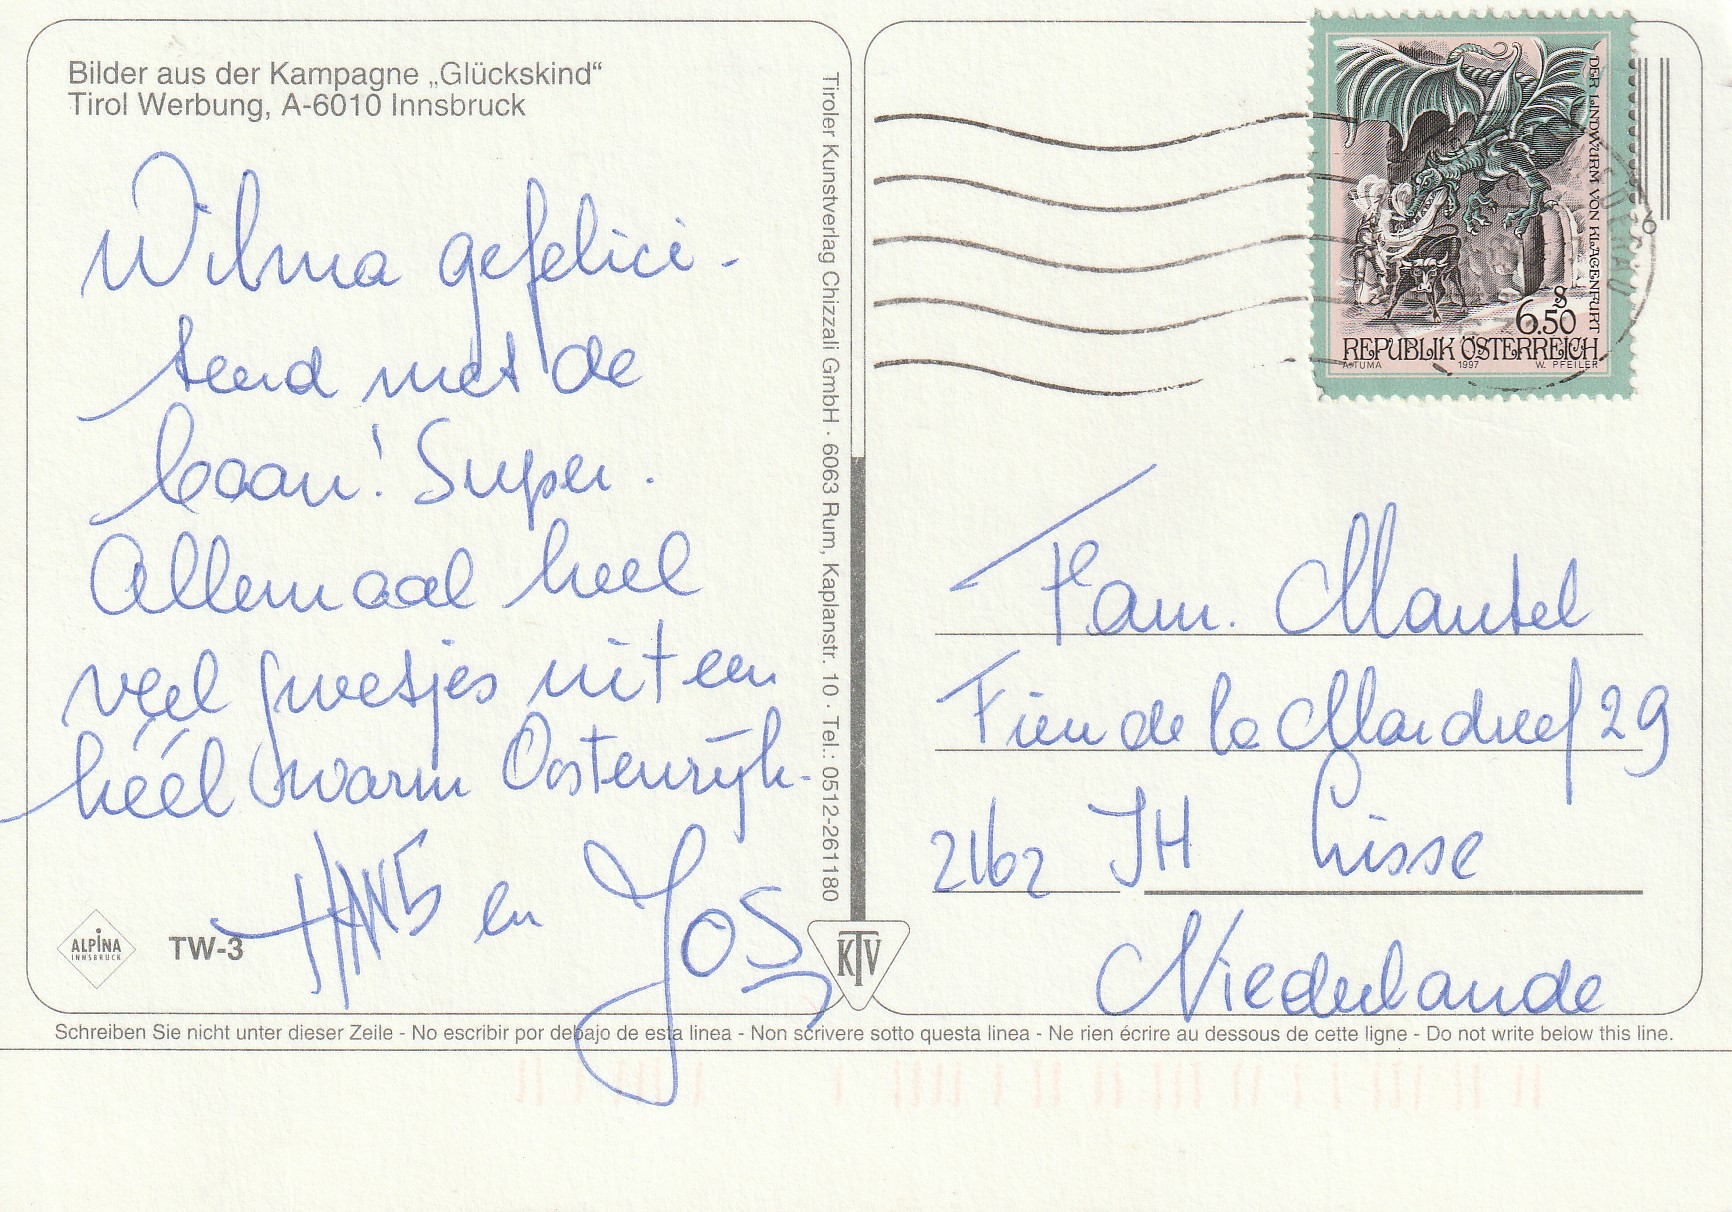 Bilder aus der Kampagne „Glückskind“
Tirol Werbung, A-6010 Innsbruck
Wilma gefelici-
teerd met de
baan! Super.
Allemaal heel
veel groetjes uit een
héél warm Oostenrijk.
HANS en Jos
ALPINA
INNSBRUCK
TW-3
Tiroler Kunstverlag Chizzali GmbH · 6063 Rum, Kaplanstr. 10 · Tel.: 0512-261180
KTV
DER LINDWURM VON KLAGENFURT
S
6.50
REPUBLIK ÖSTERREICH
A. TUMA 1997 W. PFEILER
Fam. Mantel
Fien de la Mardreef 29
2162 JH Lisse
Niederlande
Schreiben Sie nicht unter dieser Zeile - No escribir por debajo de esta linea - Non scrivere sotto questa linea - Ne rien écrire au dessous de cette ligne - Do not write below this line.